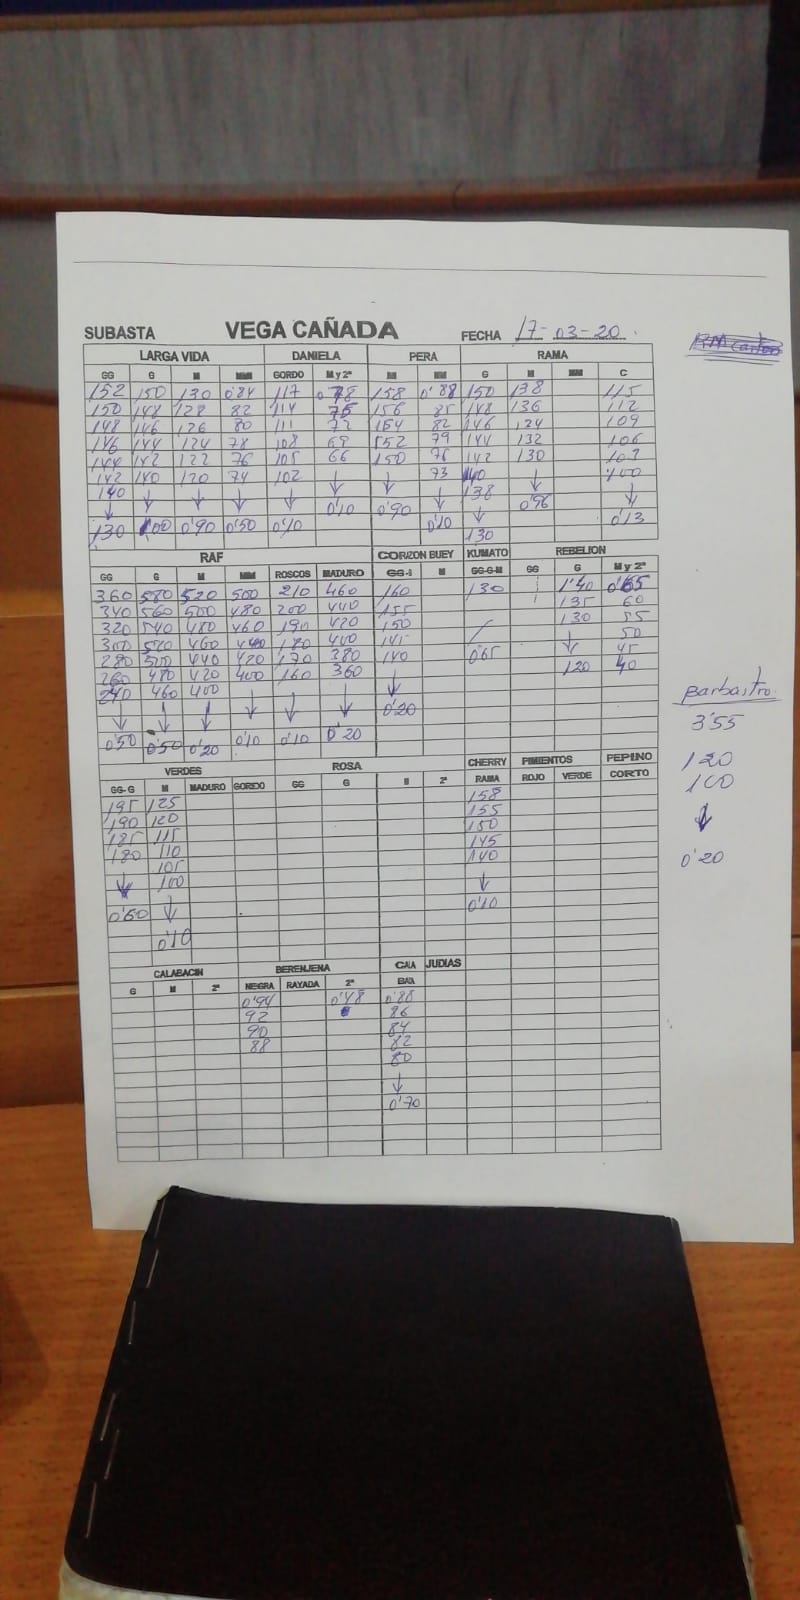 SUBASTA VEGA CAÑADA FECHA 17-03-20
LARGA VIDA DANIELA PERA RAMA
GG G M MM GORDO M y 2ª M MM G M MM C
152 150 130 0'84 117 0'78 158 0'88 150 138 115
150 148 128 82 114 75 156 85 148 136 112
148 146 126 80 111 72 154 82 146 134 109
146 144 124 78 108 69 152 79 144 132 106
144 142 122 76 105 66 150 76 142 130 103
142 140 120 74 102 ↓ ↓ 73 140 ↓ 100
140 ↓ ↓ ↓ ↓ 0'10 0'90 ↓ 138 0'96 ↓
↓ ↓ 0'13
130 100 0'90 0'50 0'10 0'10 130
RAF CORAZON BUEY KUMATO REBELION
GG G M MM ROSCOS MADURO M GG-G-M GG G M y 2ª
360 580 520 500 210 460 160 130 1'40 0'65
340 560 500 480 200 440 155 135 60
320 540 480 460 190 420 150 130 55
300 520 460 440 180 400 145 50
280 500 440 420 170 380 140 0'65 ↓ 45
260 480 420 400 160 360 120 40
240 460 400 ↓ ↓ ↓ ↓
↓ ↓ ↓ 0'20
0'50 0'50 0'20 0'10 0'10 0'20
VERDES ROSA CHERRY PIMIENTOS PEPINO
GG-G M MADURO GORDO GG G M 2ª RAMA ROJO VERDE CORTO
195 125 158
190 120 155
185 115 150
180 110 145
105 140
↓ 100 ↓
0'60 ↓ 0'10
0'10
CALABACIN BERENJENA CAJA JUDIAS
G M 2ª NEGRA RAYADA 2ª BAJA
0'94 0'48 0'88
92 86
90 84
88 82
80
↓
0'70
Barbastro
3'55
120
100
↓
0'20